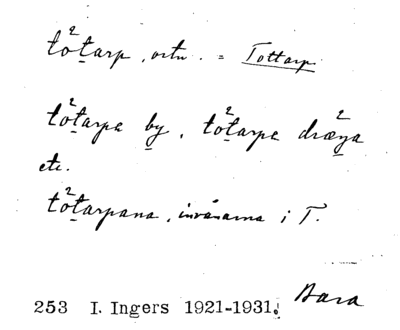 to²tarp, ortn. = Tottarp.
to²tarpa by, to²tarpa dræ²ŋa
etc.
to²tarpana, invånarna i T.
Bara
253 I. Ingers 1921-1931.